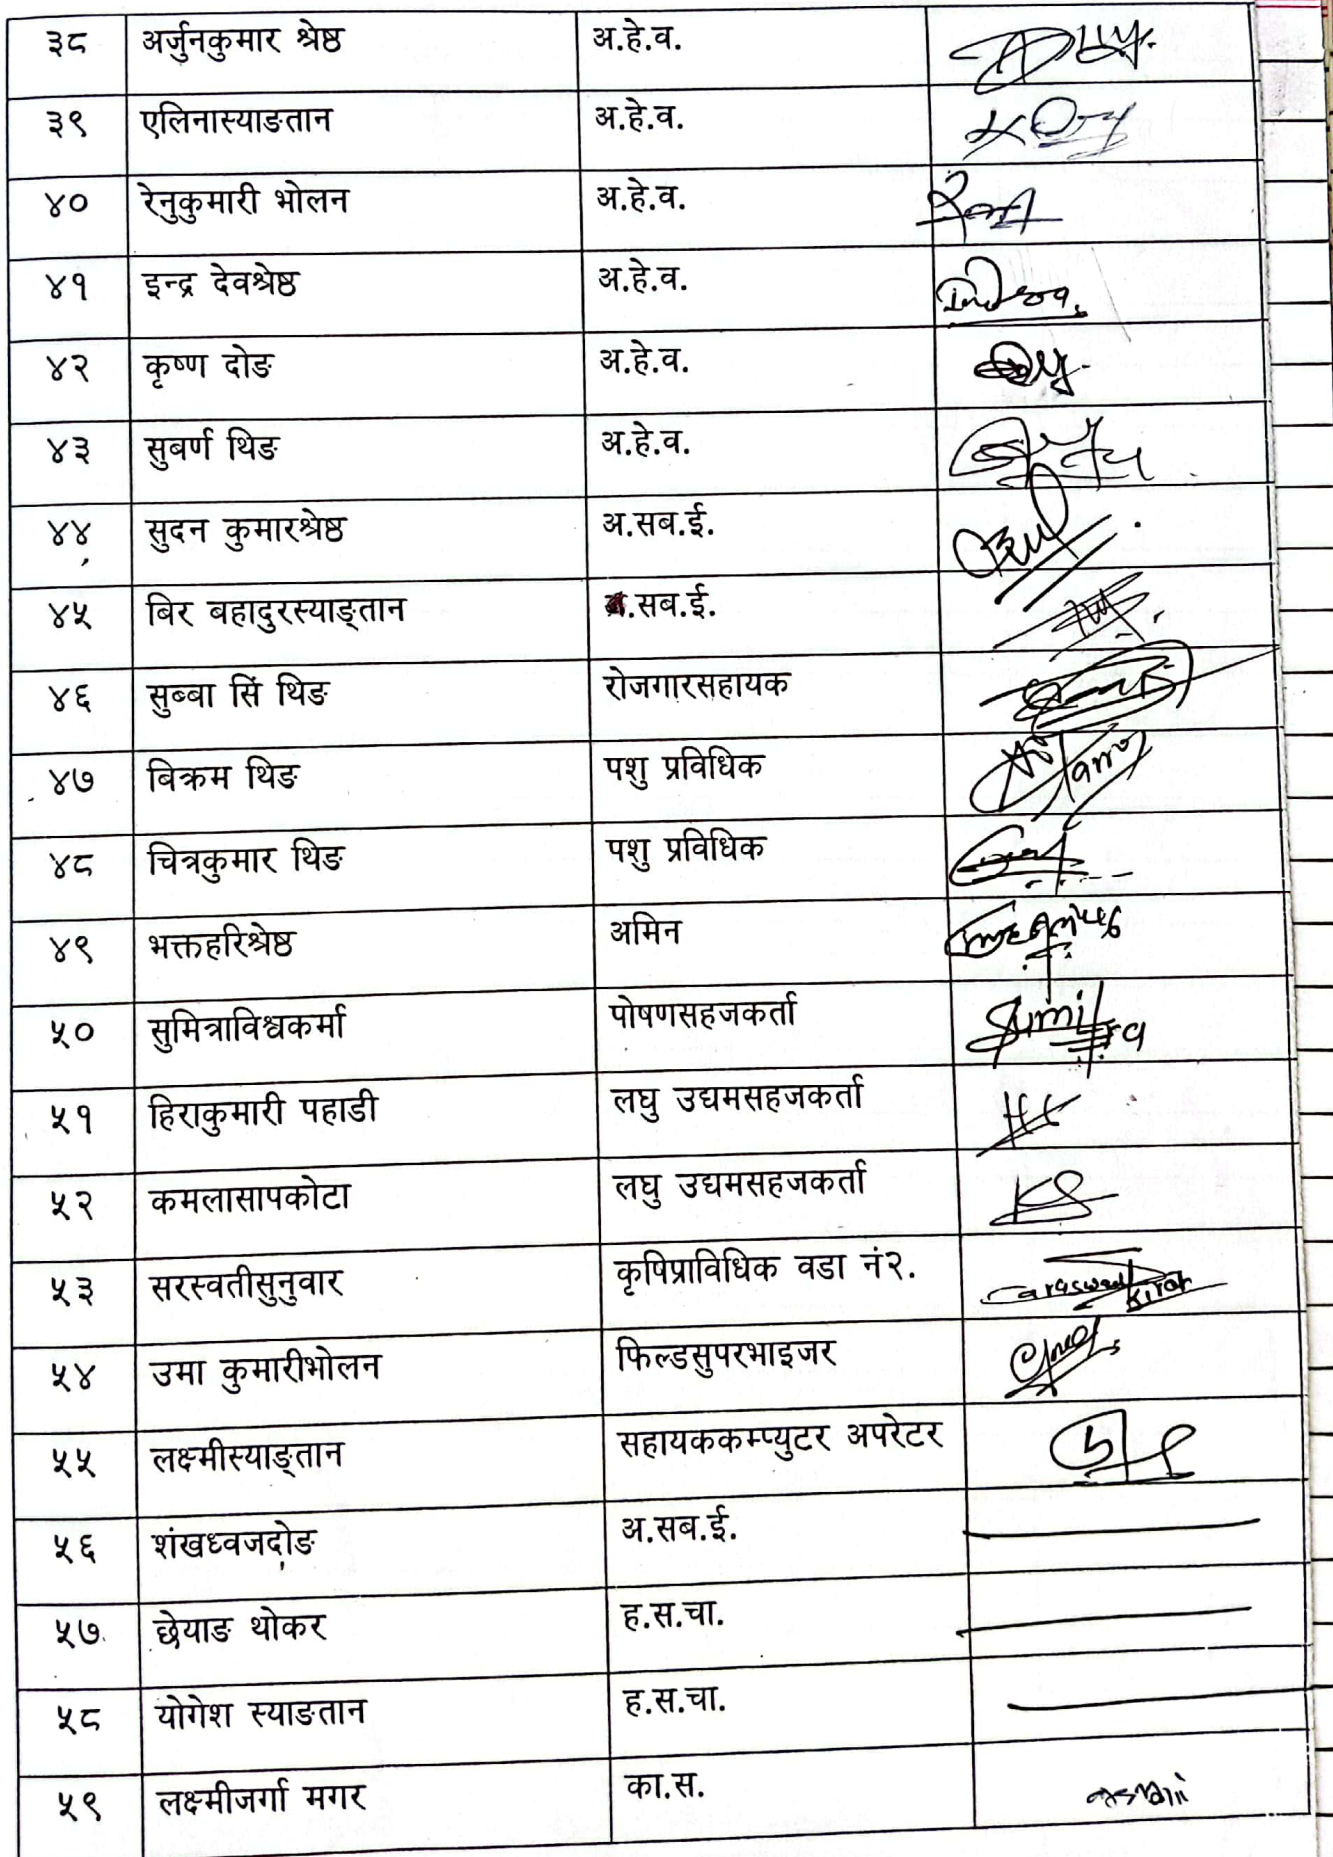 ३८ अर्जुनकुमार श्रेष्ठ अ.हे.व.
३९ एलिनास्याङतान अ.हे.व.
४० रेनुकुमारी भोलन अ.हे.व.
४१ इन्द्र देवश्रेष्ठ अ.हे.व. Indra
४२ कृष्ण दोङ अ.हे.व.
४३ सुबर्ण थिङ अ.हे.व.
४४ सुदन कुमारश्रेष्ठ अ.सब.ई.
४५ बिर बहादुरस्याङ्तान .सब.ई.
४६ सुब्बा सिं थिङ रोजगारसहायक
४७ बिक्रम थिङ पशु प्रविधिक
४८ चित्रकुमार थिङ पशु प्रविधिक
४९ भक्तहरिश्रेष्ठ अमिन
५० सुमित्राविश्वकर्मा पोषणसहजकर्ता Sumitra
५१ हिराकुमारी पहाडी लघु उद्यमसहजकर्ता
५२ कमलासापकोटा लघु उद्यमसहजकर्ता KS
५३ सरस्वतीसुनुवार कृषिप्राविधिक वडा नं२.
५४ उमा कुमारीभोलन फिल्डसुपरभाइजर
५५ लक्ष्मीस्याङ्तान सहायककम्प्युटर अपरेटर
५६ शंखध्वजदोङ अ.सब.ई.
५७ छेयाङ थोकर ह.स.चा.
५८ योगेश स्याङतान ह.स.चा.
५९ लक्ष्मीजर्गा मगर का.स.